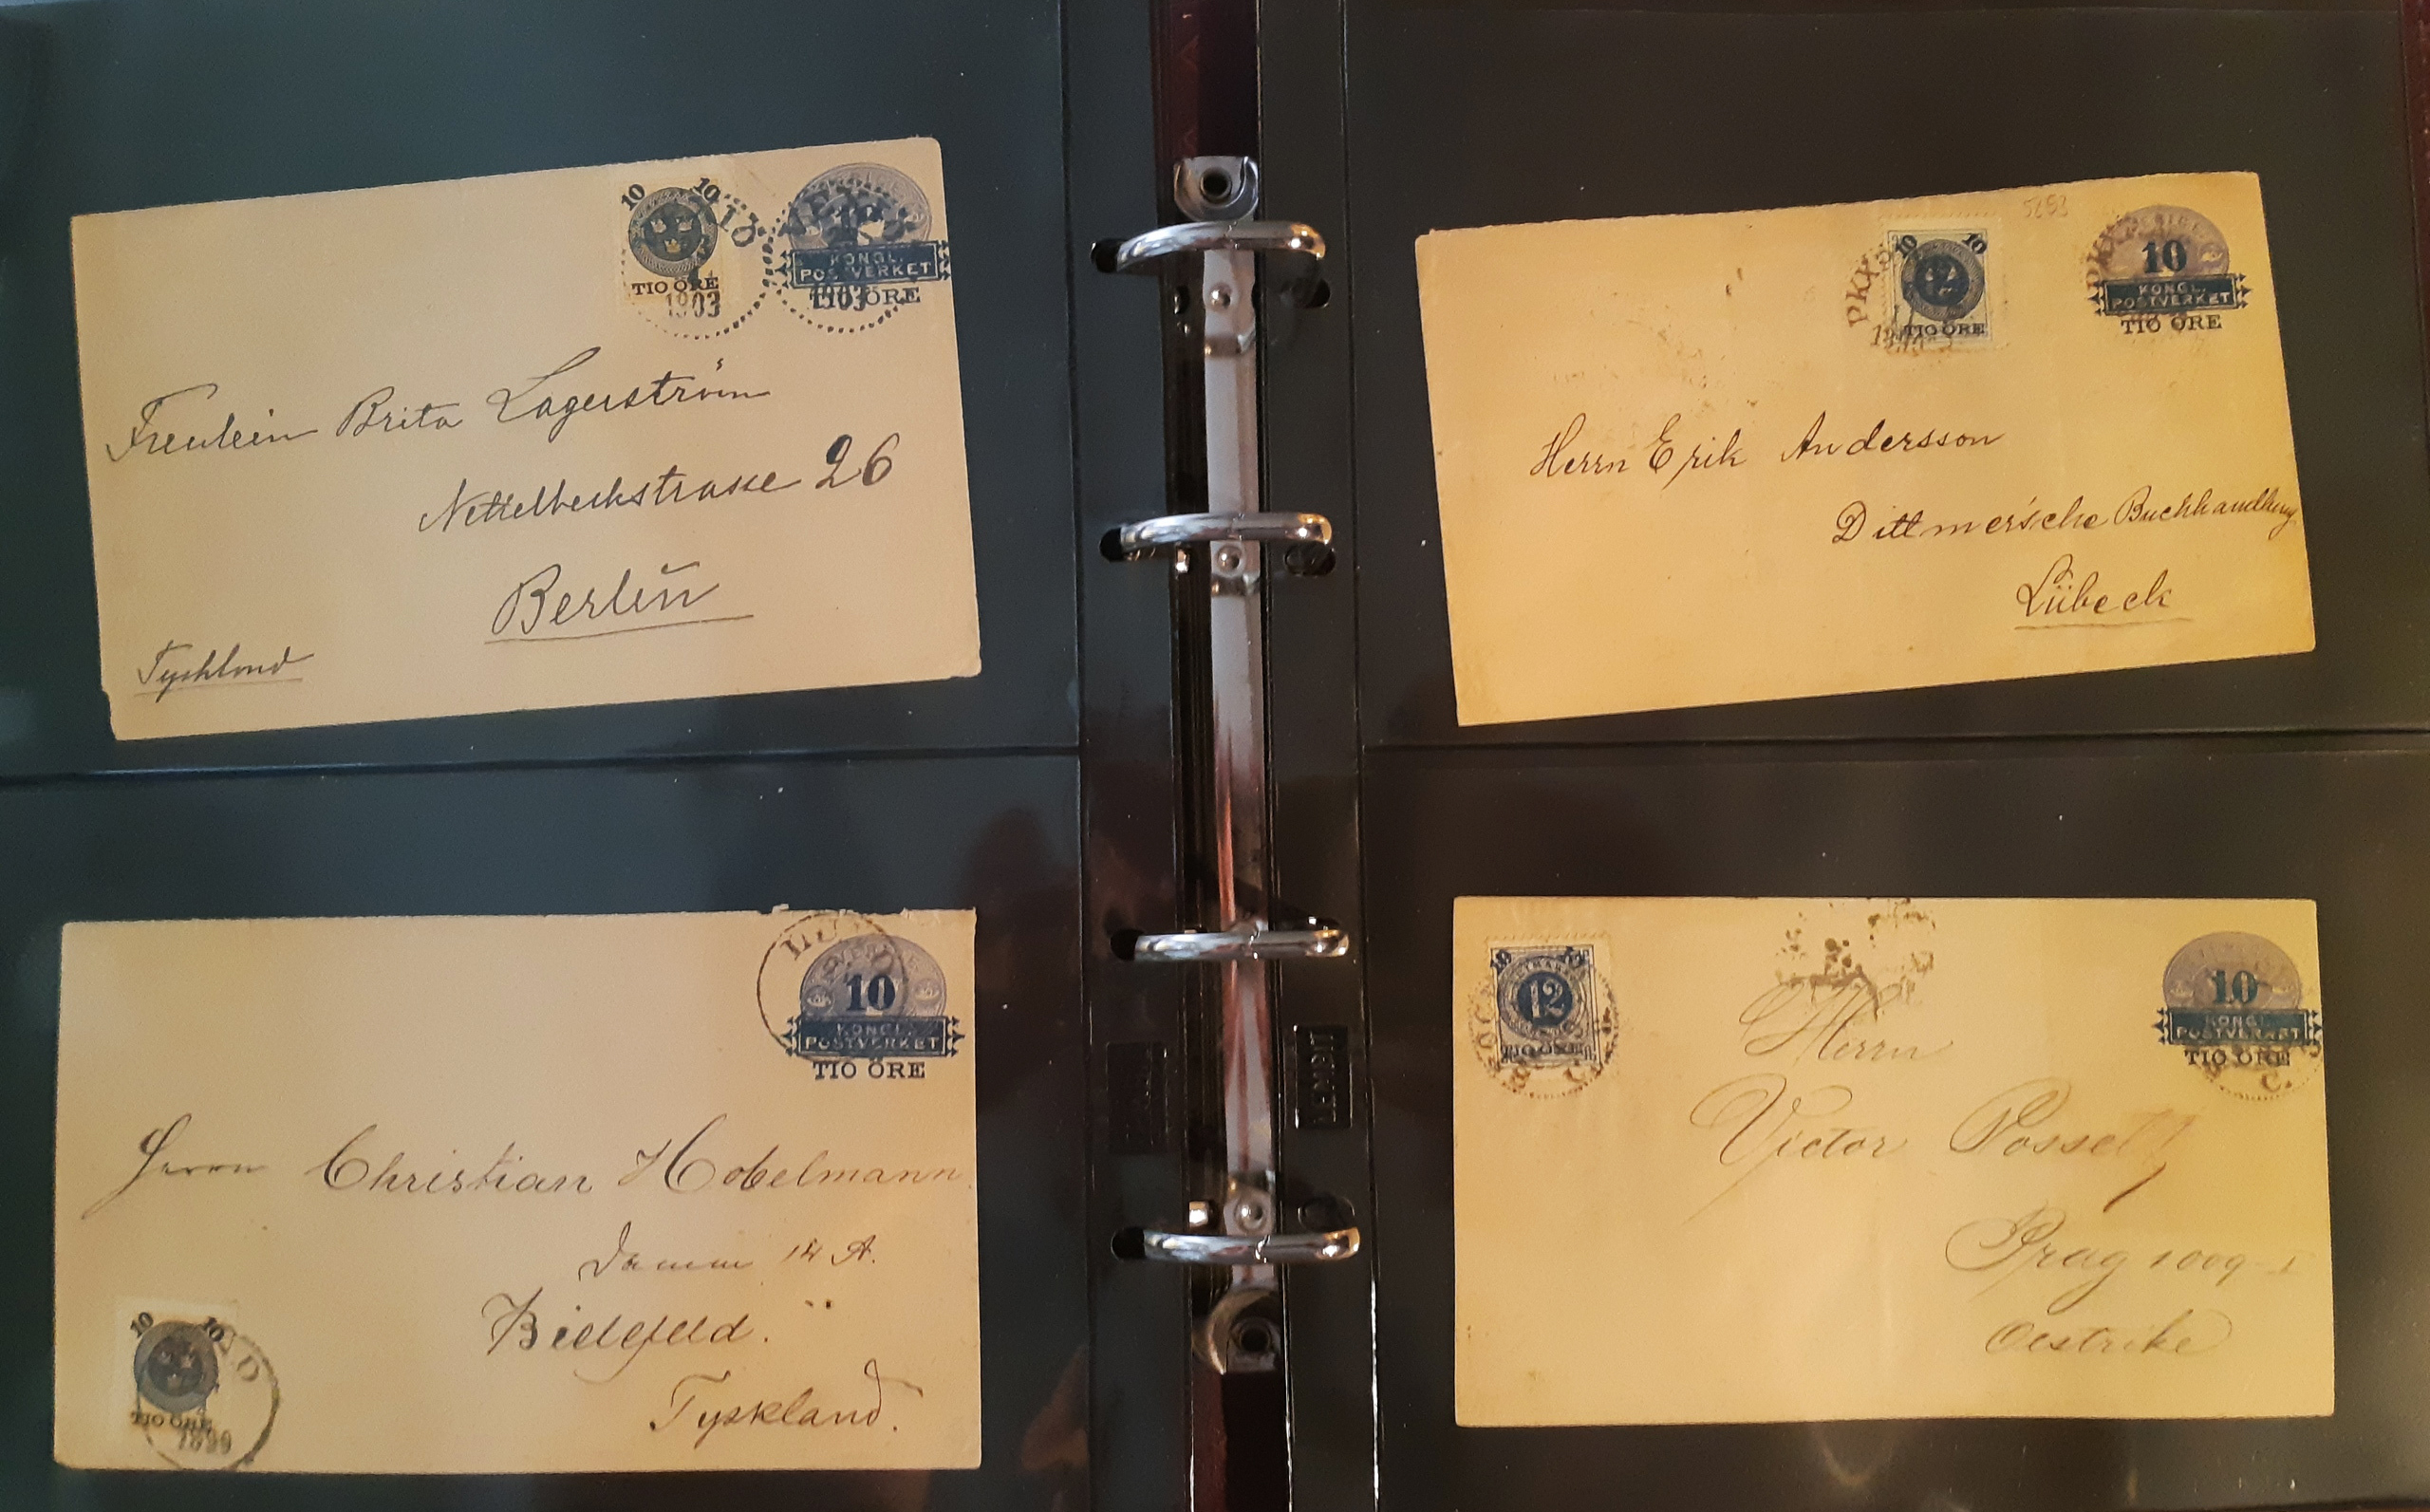 10 10
TIO ÖRE
1903
10
KONGL.
POSTVERKET
TIO ÖRE
1903
Freulein Brita Lagerström
Nettelbeckstrasse 26
Berlin
Tyskland
5263
10 10
12
TIO ÖRE
PKXP
10
KONGL.
POSTVERKET
TIO ÖRE
Herrn Erik Andersson
Dittmer'sche Buchhandlung
Lübeck
10
KONGL.
POSTVERKET
TIO ÖRE
Herrn Christian Hobelmann
Damm 14 A.
Bielefeld.
Tyskland.
10 10
TIO ÖRE
1899
10
12
TIO ÖRE
10
KONGL.
POSTVERKET
TIO ÖRE
C.
Herrn
Victor Posselt
Prag 1009-I
Oestrike
LEMBIT